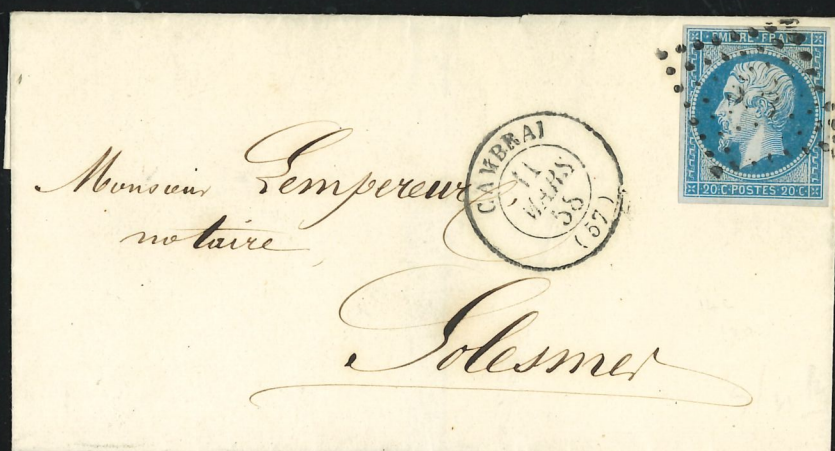 EMPIRE FRANC
20·C·POSTES·20·C
CAMBRAI
11
MARS
58
(57)
Monsieur Lempereur
notaire
Solesmes